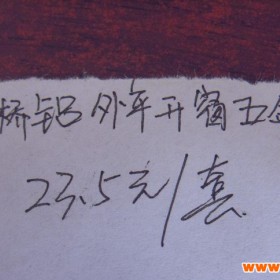 桥铝外平开窗五金
23.5元/套
www.